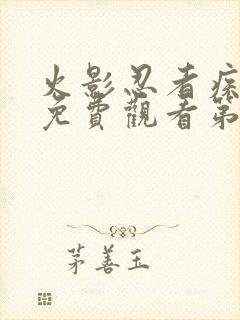 火影忍者疾
免費觀看第
茅善玉